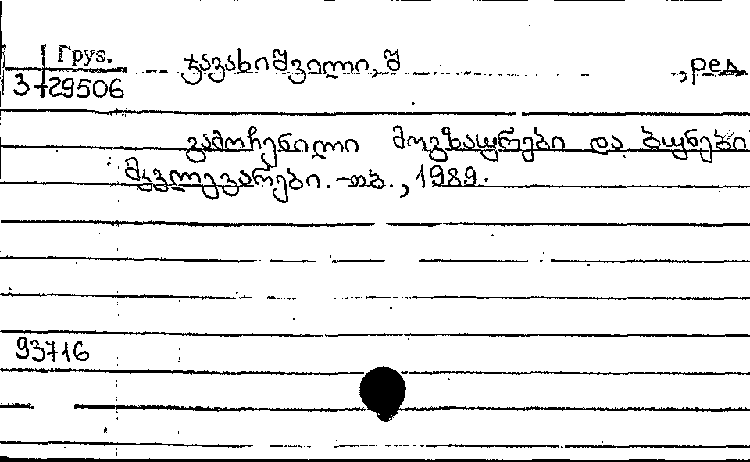 Груз.
3-29506
ჯავახიშვილი, შ , ред
გამოჩენილი მოგზაურები და ბუნების
მკვლევარები. – თბ., 1989.
93716